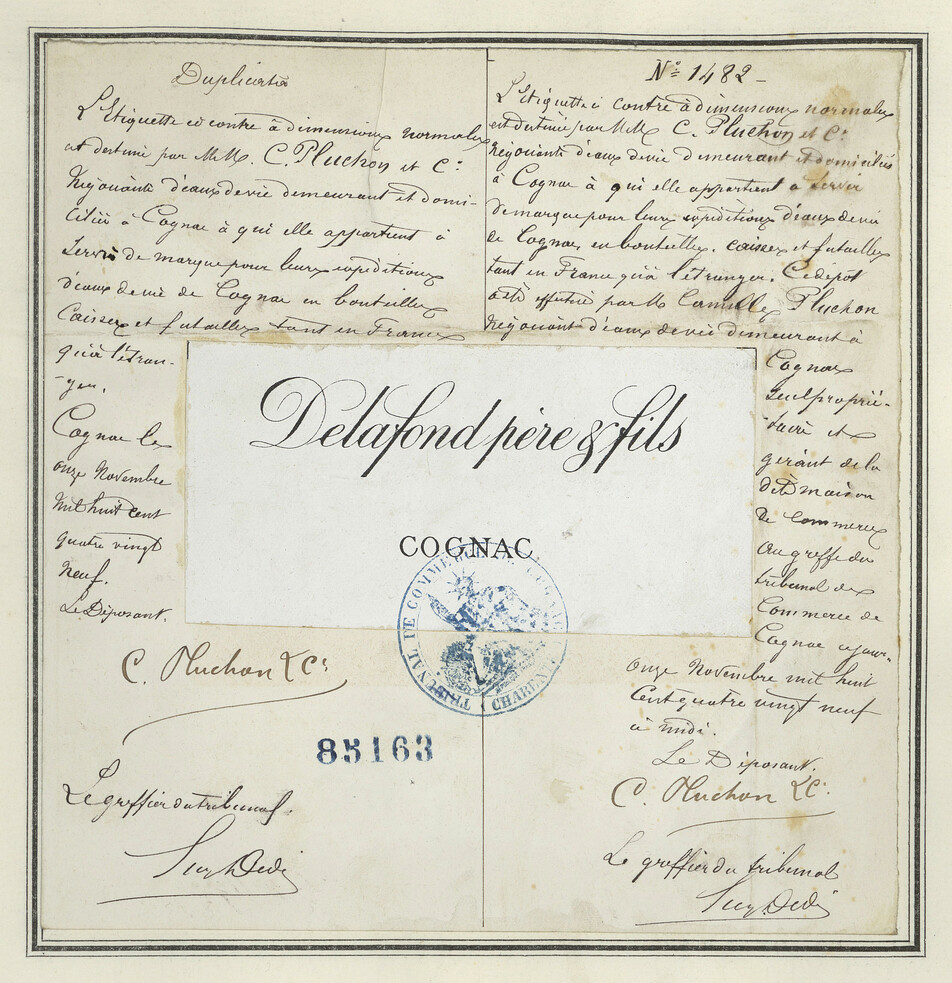 Duplicata
L'Etiquette ci contre à dimensions normales
est destiné par M.M. C. Pluchon et Cie
Négociants d'eaux de vie demeurant et domi-
ciliés à Cognac à qui elle appartient à
Servir de marque pour leurs expéditions
d'eaux de vie de Cognac en bouteilles
Caisses et futailles tant en France
qu'à l'étran-
ger.
Cognac le
onze Novembre
Mil huit cent
quatre vingt
neuf.
Le Déposant.
C. Pluchon & Cie
85163
Le greffier du tribunal.
No 1482 -
L'Etiquette ci contre à dimensions normales
est destiné par M.M. C. Pluchon et Cie
Négociants d'eaux de vie demeurant et domiciliés
à Cognac à qui elle appartient à Servir
de marque pour leurs expéditions d'eaux de vie
de Cognac en bouteilles, caisses et futailles
tant en France qu'à l'étranger. Ce dépôt
a été effectué par M. Camille Pluchon
Négociant d'eaux de vie demeurant à
Cognac
seul proprié-
taire et
gérant de la
dite maison
de commerce
au greffe du
tribunal de
Commerce de
Cognac ce jour-
onze Novembre mil huit
Cent quatre vingt neuf
à midi.
Le Déposant.
C. Pluchon & Cie
Le greffier du tribunal
Delafond père & fils
COGNAC
TRIBUNAL DE COMMERCE DE COGNAC
CHARENTE